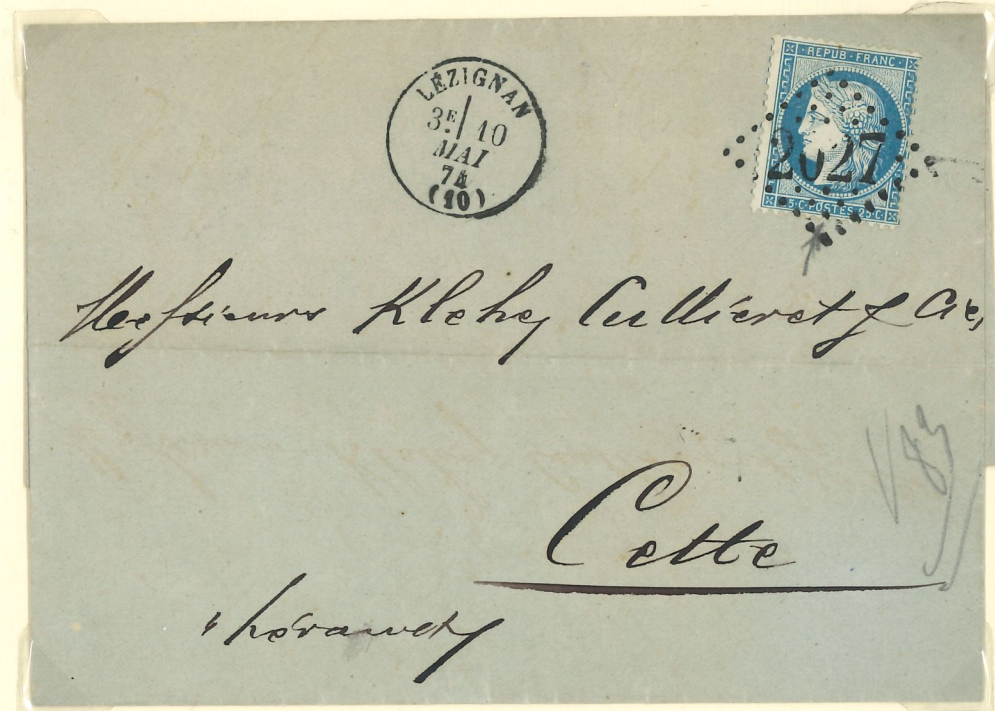 LÉZIGNAN
3E/ 10
MAI
74
(10)
REPUB·FRANC·
2027
25·C·POSTES·25·C·
Messieurs Klehe, Cullieret & Cie,
Cette
(hérault)